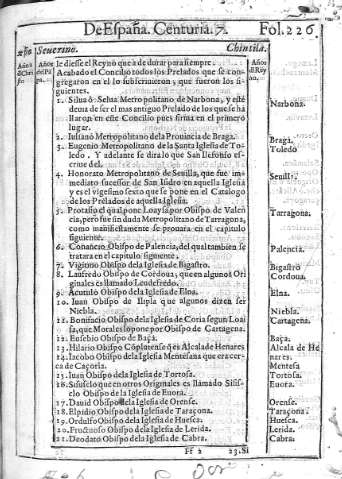 De España. Centuria. 7. Fol. 226.
Año Seuerino. Chintila.
Año d̄ Chri sto
Años del Pāpa.
Años del Rey no.
le diesse el Reyno que a de durar para siempre.
Acabado el Concilio todos los Prelados que se congregaron en el lo subscriuieron, que fueron los siguientes.
1. Silua ò Selua Metropolitano de Narbona, y este deuia de ser el mas antiguo Prelado de los que se hallaron en este Concilio pues firma en el primero lugar.
Narbona.
2. Iuliano Metropolitano de la Prouincia de Braga.
Braga.
3. Eugenio Metropolitano de la Santa Iglesia de Toledo. Y adelante se dira lo que San Ilefonso escriue del.
Toledo
4. Honorato Metropolitano de Seuilla, que fue immediato sucessor de San Isidro en aquella Iglesia y es el vigesimo sexto que se pone en el Catalogo de los Prelados de aquella Iglesia.
Seuilla.
5. Protasio el qual pone Loaysa por Obispo de Valencia, pero fue sin duda Metropolitano de Tarragona, como manifiestamente se prouara en el capitulo siguiente.
Tarragona.
6. Conancio Obispo de Palencia, del qual tambien se tratara en el capitulo siguiente.
Palencia.
7. Vigitino Obispo de la Iglesia de Bigastro.
Bigastro
8. Laufredo Obispo de Cordoua, que en algunos Originales es llamado Leudefredo.
Cordoua.
9. Acutulo Obispo de la Iglesia de Elna.
Elna.
10. Iuan Obispo de Ilipla que algunos dizen ser Niebla.
Niebla.
11. Bonifacio Obispo de la Iglesia de Coria segun Loaisa, que Morales lo pone por Obispo de Cartagena.
Cartagena.
12. Eusebio Obispo de Baça.
Baça.
13. Hilario Obispo Cōplutense q̄ es Alcala de Henares
Alcala de Henares.
14. Iacobo Obispo de la Iglesia Mentesana que era cerca de Caçorla.
Mentesa
15. Iuan Obispo de la Iglesia de Tortosa.
Tortosa.
16. Sisisclo que en otros Originales es llamado Sisisclo Obispo de la Iglesia de Euora.
Euora.
17. Dauid Obispo de la Iglesia de Orense.
Orense.
18. Elpidio Obispo de la Iglesia de Taraçona.
Taraçona.
19. Ordulfo Obispo de la Iglesia de Huesca.
Huesca.
20. Fructuoso Obispo de la Iglesia de Lerida.
Lerida.
21. Deodato Obispo de la Iglesia de Cabra.
Cabra.
Ff 2 23. Si